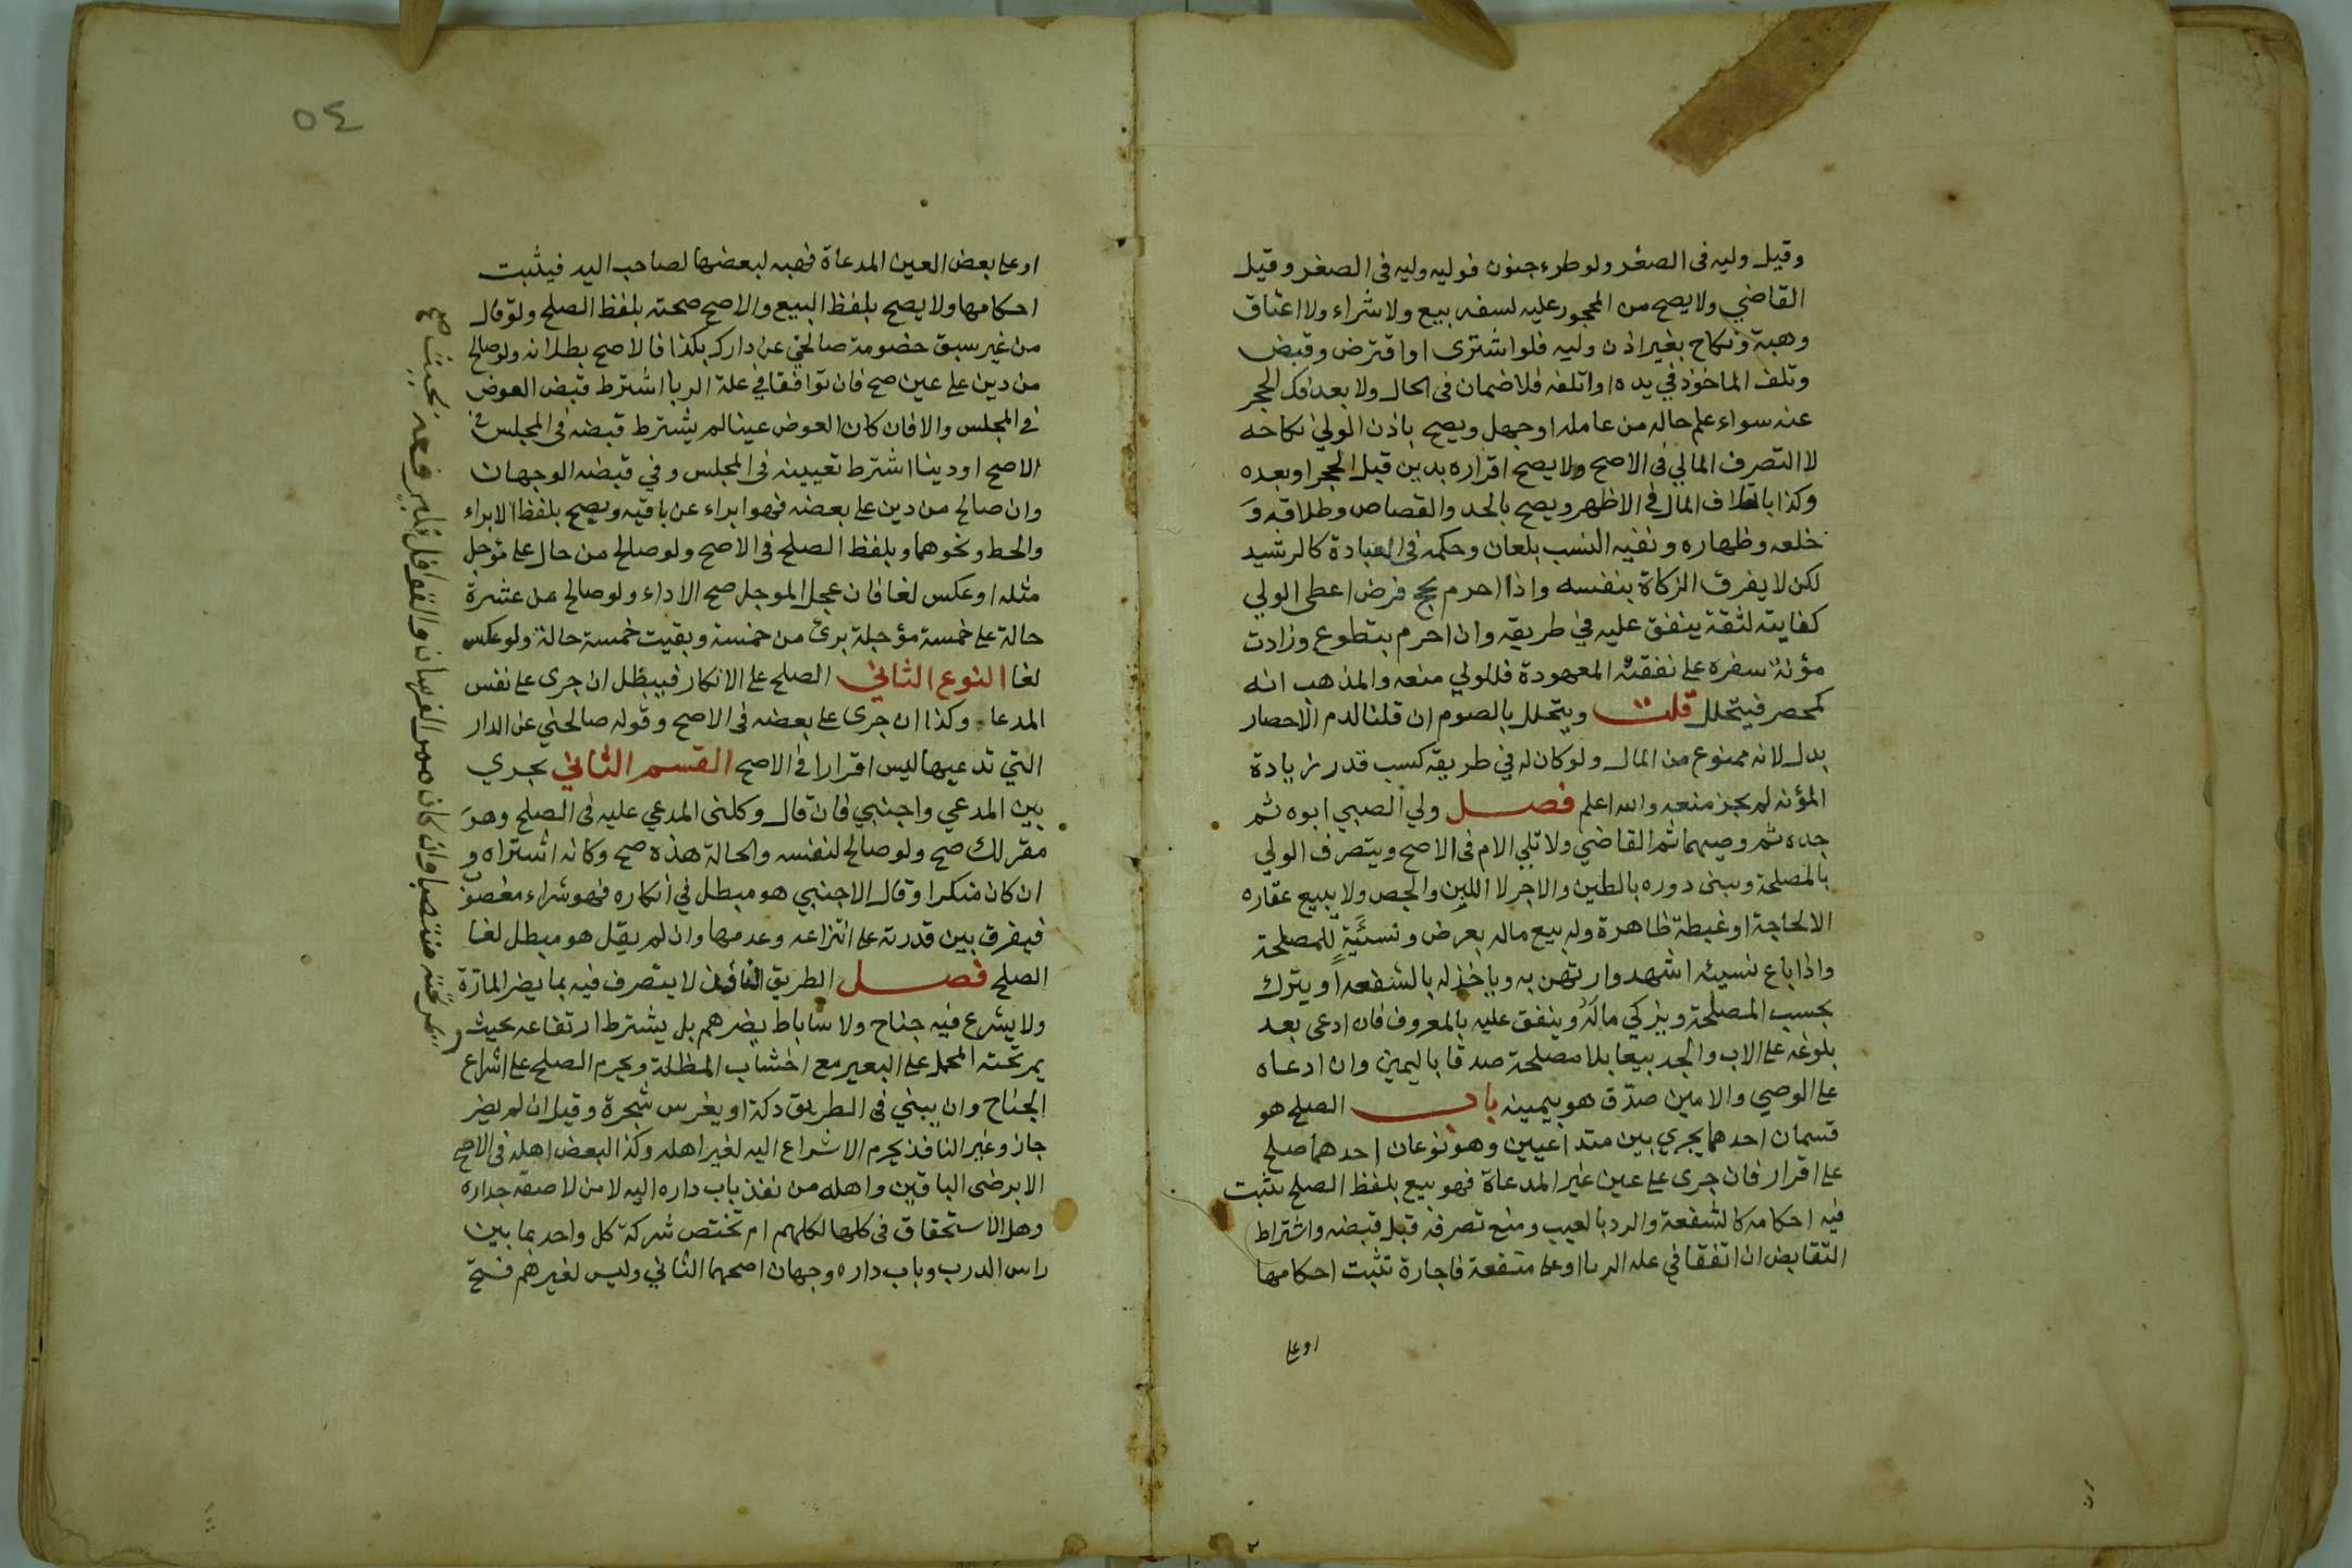 وقيل وليه فى الصغر ولو طرء جنون فوليه وليه فى الصغر وقيل
القاضي ولا يصح من المحجور عليه لسفه بيع ولا شراء ولا اعتاق
وهبة ونكاح بغير اذن وليه فلو اشترى او اقترض وقبض
وتلف الماخوذ في يده او اتلفه فلا ضمان فى الحال ولا بعد فك الحجر
عنه سواء علم حاله من عامله او جهل ويصح باذن الولي نكاحه
لا التصرف المالي فى الاصح ولا يصح اقراره بدين قبل الحجر او بعده
وكذا باتلاف المال في الاظهر ويصح بالحد والقصاص وطلاقه و
خلعه وظهاره ونفيه النسب بلعان وحكمه فى العبادة كالرشيد
لكن لا يفرق الزكاة بنفسه واذا احرم بحج فرض اعطى الولي
كفايته لثقة ينفق عليه في طريقه وان احرم بتطوع وزادت
مؤنة سفره على نفقته المعهودة فللولي منعه والمذهب انه
كمحصر فيتحلل قلت ويتحلل بالصوم ان قلنا لدم الاحصار
بدل لانه ممنوع من المال ولو كان له في طريقه كسب قدر زيادة
المؤنه لم يجز منعه والله اعلم فصل ولي الصبي ابوه ثم
جده ثم وصيهما ثم القاضي ولا تلي الام فى الاصح ويتصرف الولي
بالمصلحة ويبنى دوره بالطين والاجر لا اللبن والجص ولا يبيع عقاره
الا لحاجة او غبطة ظاهرة وله بيع ماله بعرض ونسئية للمصلحة
واذا باع نسيئه اشهد وارتهن به وياخذ له بالشفعه او يترك
بحسب المصلحة ويزكي ماله وينفق عليه بالمعروف فان ادعى بعد
بلوغه على الاب والجد بيعا بلا مصلحة صدقا باليمين وان ادعاه
على الوصي والامين صدق هو بيمينه باب الصلح هو
قسمان احدهما يجري بين متداعيين وهو نوعان احدهما صلح
على اقرار فان جرى على عين غير المدعاة فهو بيع بلفظ الصلح تثبت
فيه احكامه كالشفعة والرد بالعيب ومنع تصرفه قبل قبضه واشتراط
التقابض ان اتفقا في علة الربا او على منفعة فاجارة تثبت احكامها
او على
٥٤
او على بعض العين المدعاة فهبه لبعضها لصاحب اليد فيثبت
احكامها ولا يصح بلفظ البيع والاصح صحته بلفظ الصلح ولو قال
من غير سبق خصومة صالحني عن دارك بكذا فالاصح بطلانه ولو صالح
من دين على عين صح فان توافقا في علة الربا اشترط قبض العوض
في المجلس والا فان كان العوض عينا لم يشترط قبضه فى المجلس في
الاصح او دينا اشترط تعيينه فى المجلس وفي قبضه الوجهان
وان صالح من دين على بعضه فهو ابراء عن باقيه ويصح بلفظ الابراء
والحط ونحوهما وبلفظ الصلح فى الاصح ولو صالح من حال على موجل
مثله او عكس لغا فان عجل الموجل صح الاداء ولو صالح من عشرة
حالة على خمسة مؤجلة برئ من خمسة وبقيت خمسة حالة ولو عكس
لغا النوع الثاني الصلح على الانكار فيبطل ان جرى على نفس
المدعا وكذا ان جرى على بعضه فى الاصح وقوله صالحني عن الدار
التي تدعيها ليس اقرارا في الاصح القسم الثاني يجري
بين المدعي واجنبي فان قال وكلنى المدعي عليه فى الصلح وهو
مقر لك صح ولو صالح لنفسه والحالة هذه صح وكانه اشتراه و
ان كان منكرا وقال الاجنبي هو مبطل في انكاره فهو شراء مغصوب
فيفرق بين قدرته على انتزاعه وعدمها وان لم يقل هو مبطل لغا
الصلح فصل الطريق النافذ لا يتصرف فيه بما يضر المارة
ولا يشرع فيه جناح ولا ساباط يضرهم بل يشترط ارتفاعه بحيث
يمر تحته المحمل على البعير مع اخشاب المظلة ويحرم الصلح على اشراع
الجناح وان يبني فى الطريق دكة او يغرس شجرة وقيل ان لم يضر
جاز وغير النافذ يحرم الاشراع اليه لغير اهله وكذا البعض اهله فى الاصح
الا برضى الباقين واهله من نفذ باب داره اليه لا من لاصقه جداره
وهل الاستحقاق فى كلها لكلهم ام تختص شركة كل واحد بما بين
راس الدرب وباب داره وجهان اصحهما الثاني وليس لغيرهم فتح
يمر تحته منتصبا وان كان ممر الفرسان والقوافل فليرفعه بحيث صح